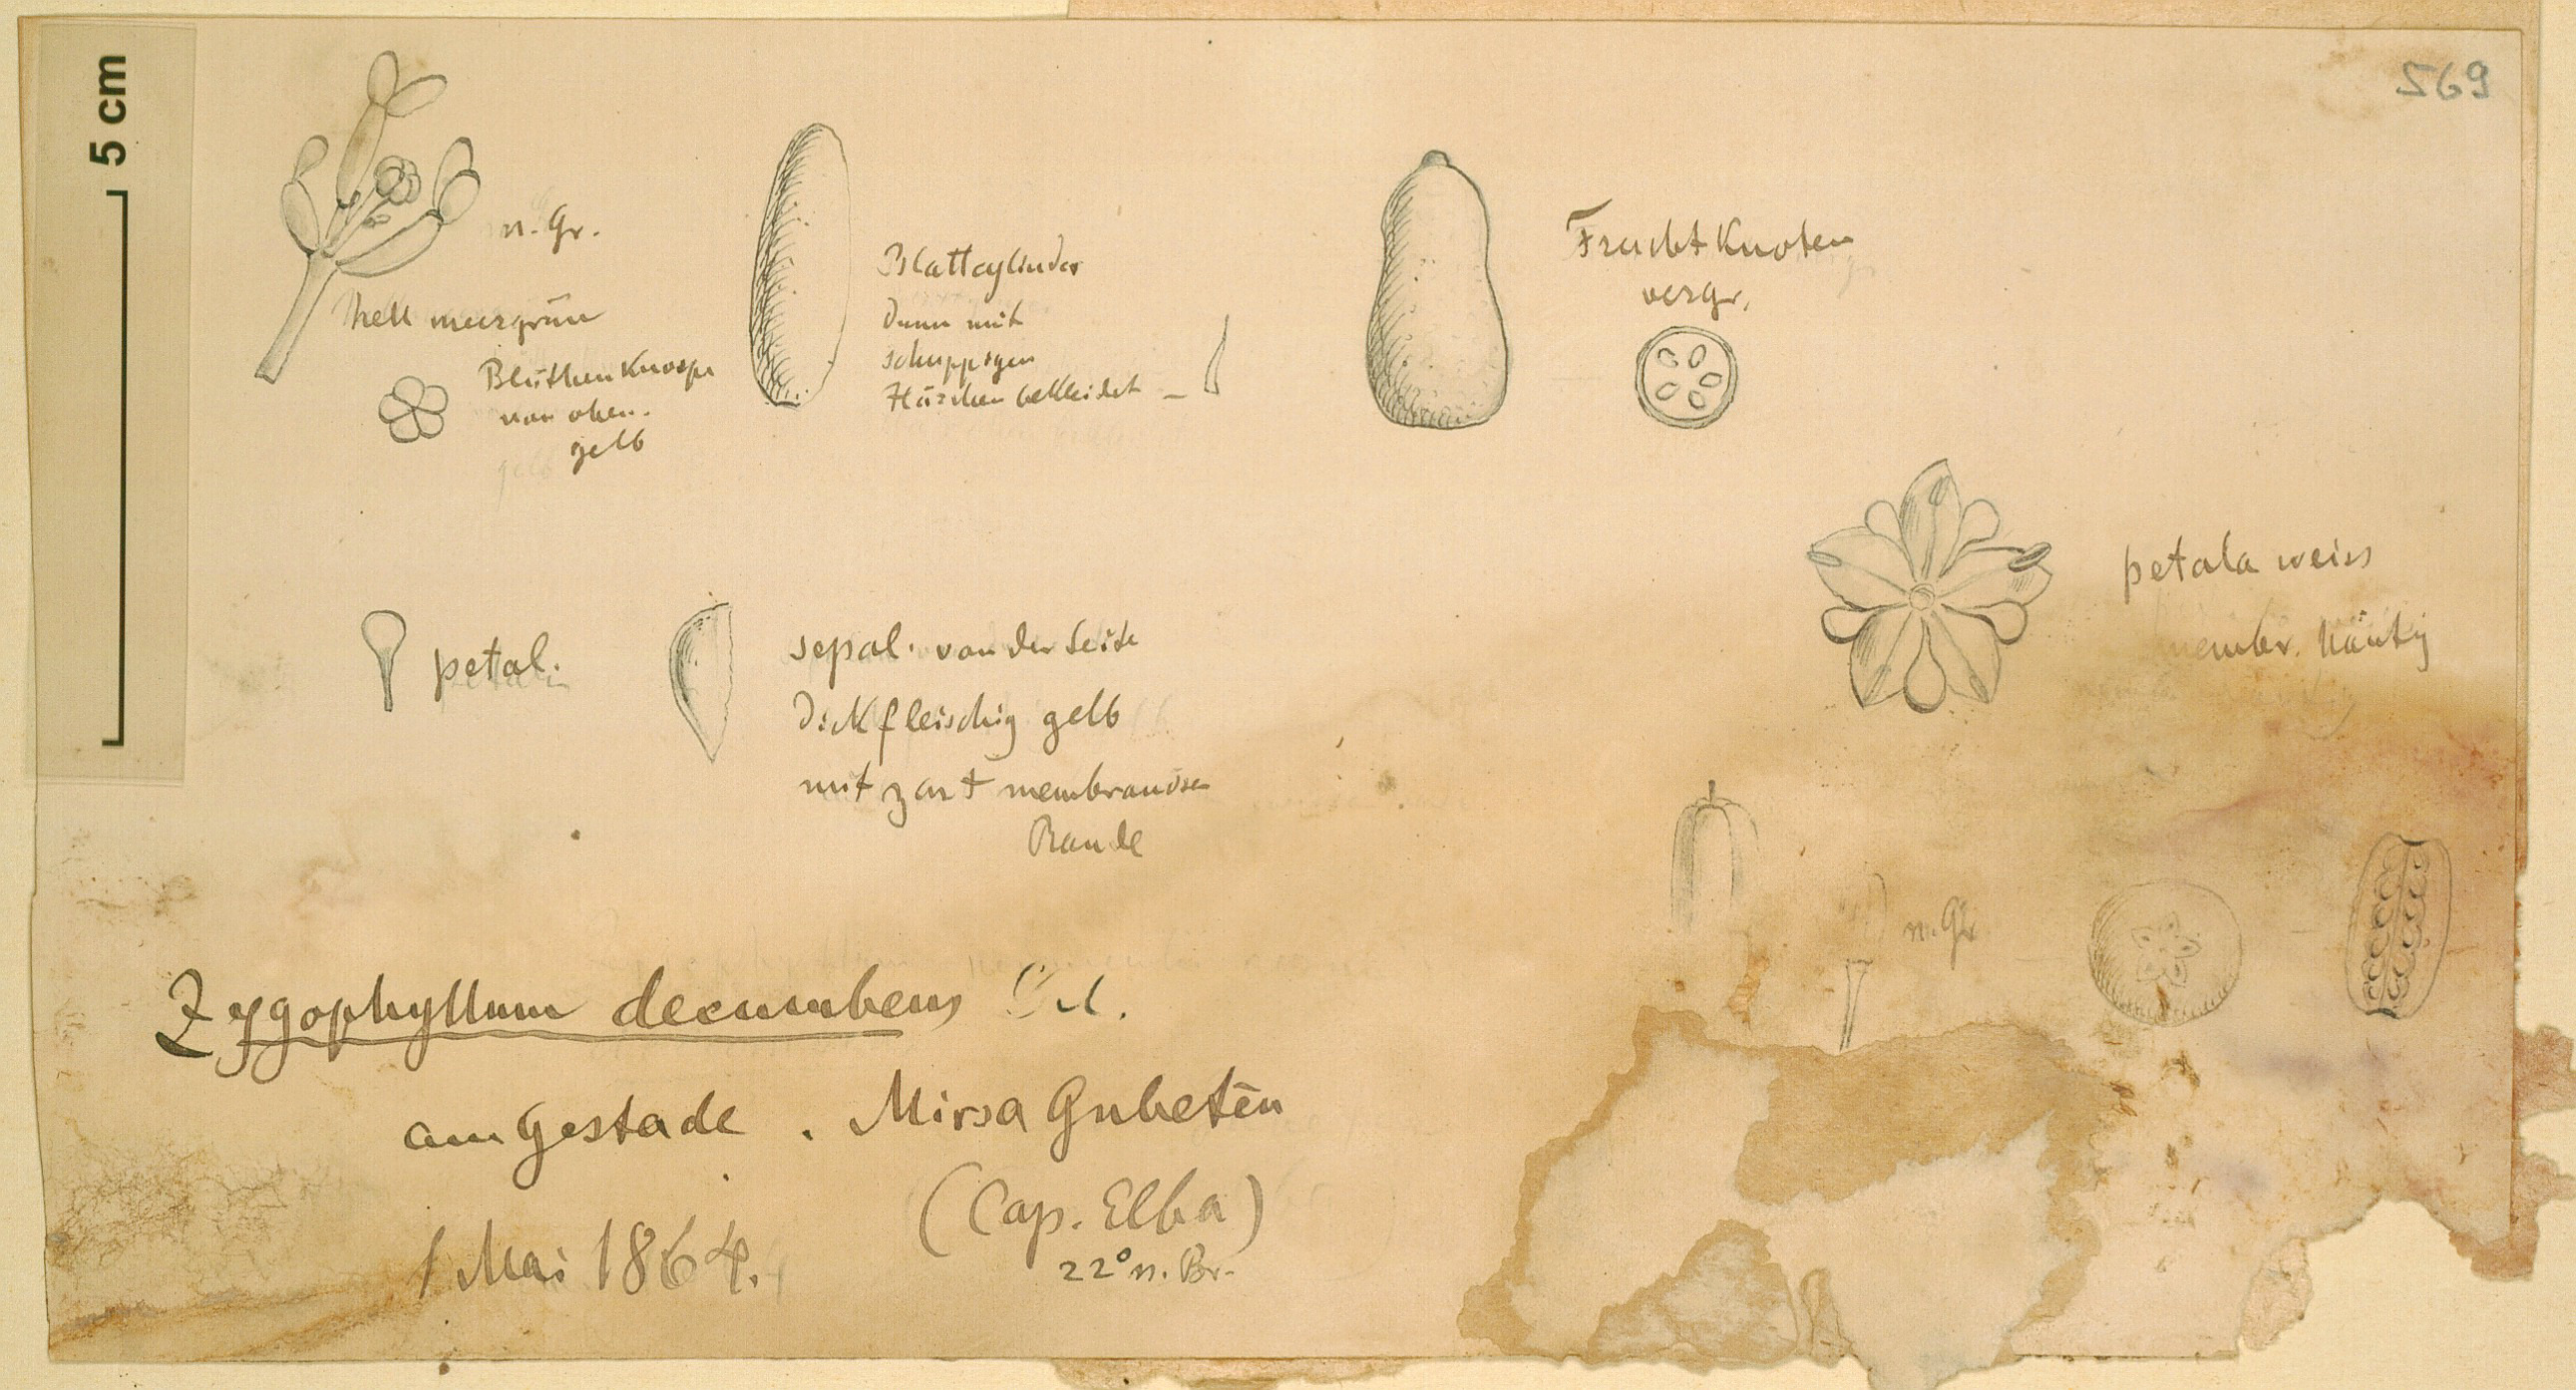 5 cm
569
n. Gr.
hell meergrün
Blüthenknospe
von oben.
gelb
Blattcylinder
dünn mit
schuppigen
Härchen bekleidet –
Fruchtknoten
vergr.
petal.
sepal. von der Seite
dickfleischig gelb
mit zart membranösen
Rande
petala weiss
membr. häutig
n. Gr.
Zygophyllum decumbens Del.
am Gestade . Mirsa Gubetēn
(Cap. Elba)
22° n. Br.
1 Mai 1864.